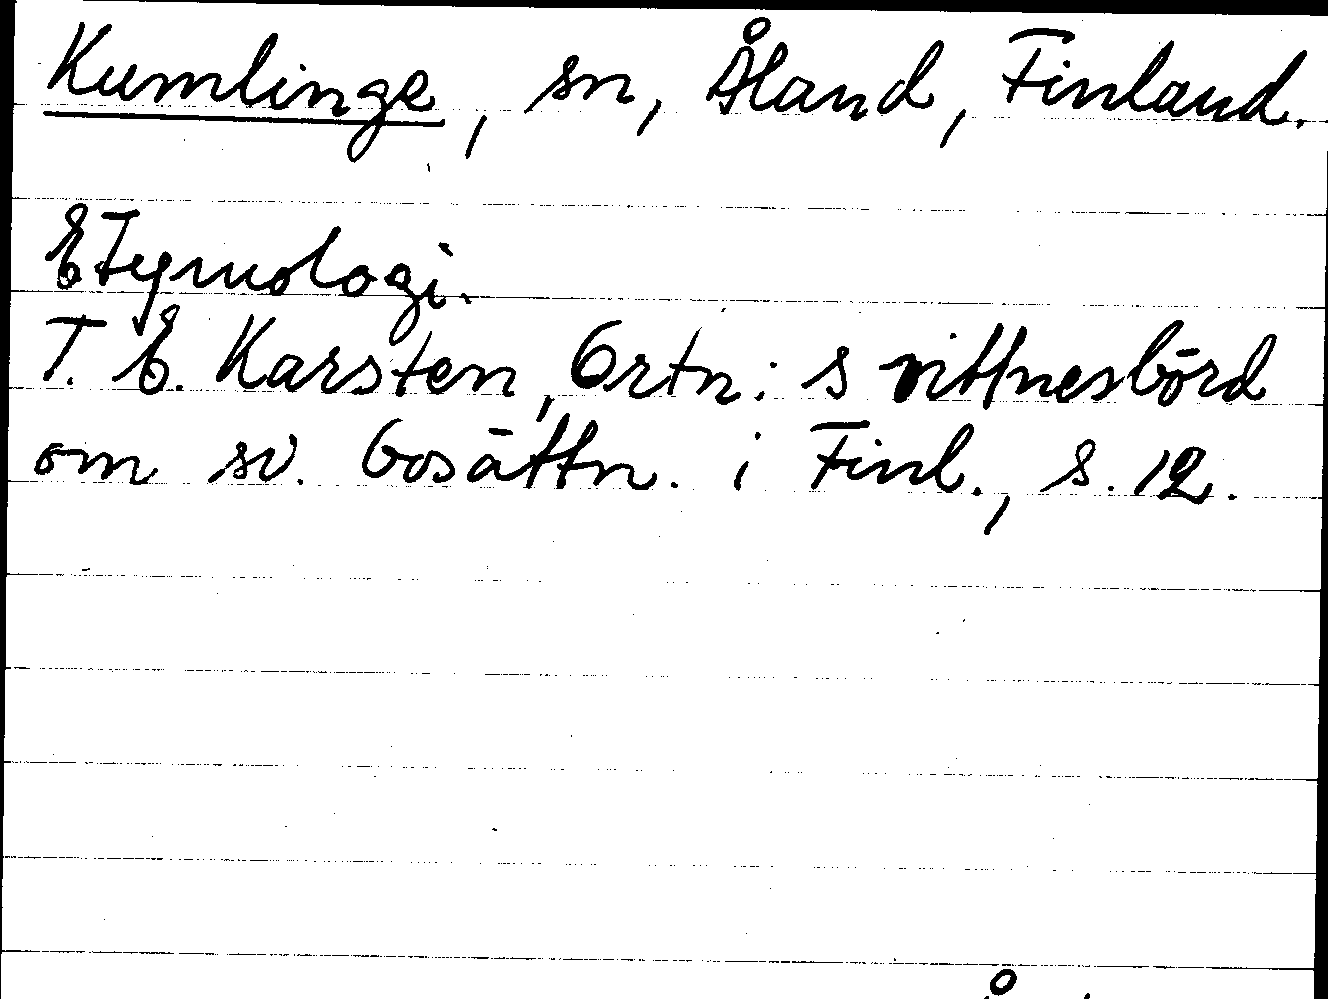 Kumlinge, sn, Åland, Finland.
Etymologi.
T. E. Karsten, Ortn:s vittnesbörd
om sv. bosättn. i Finl., s. 12.